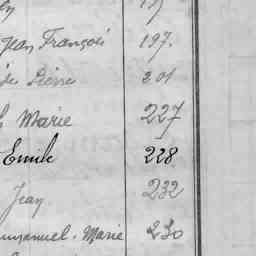 Jean François 197.
Pierre 201
Marie 227
Emile 228
Jean 232
Emmanuel. Marie 230